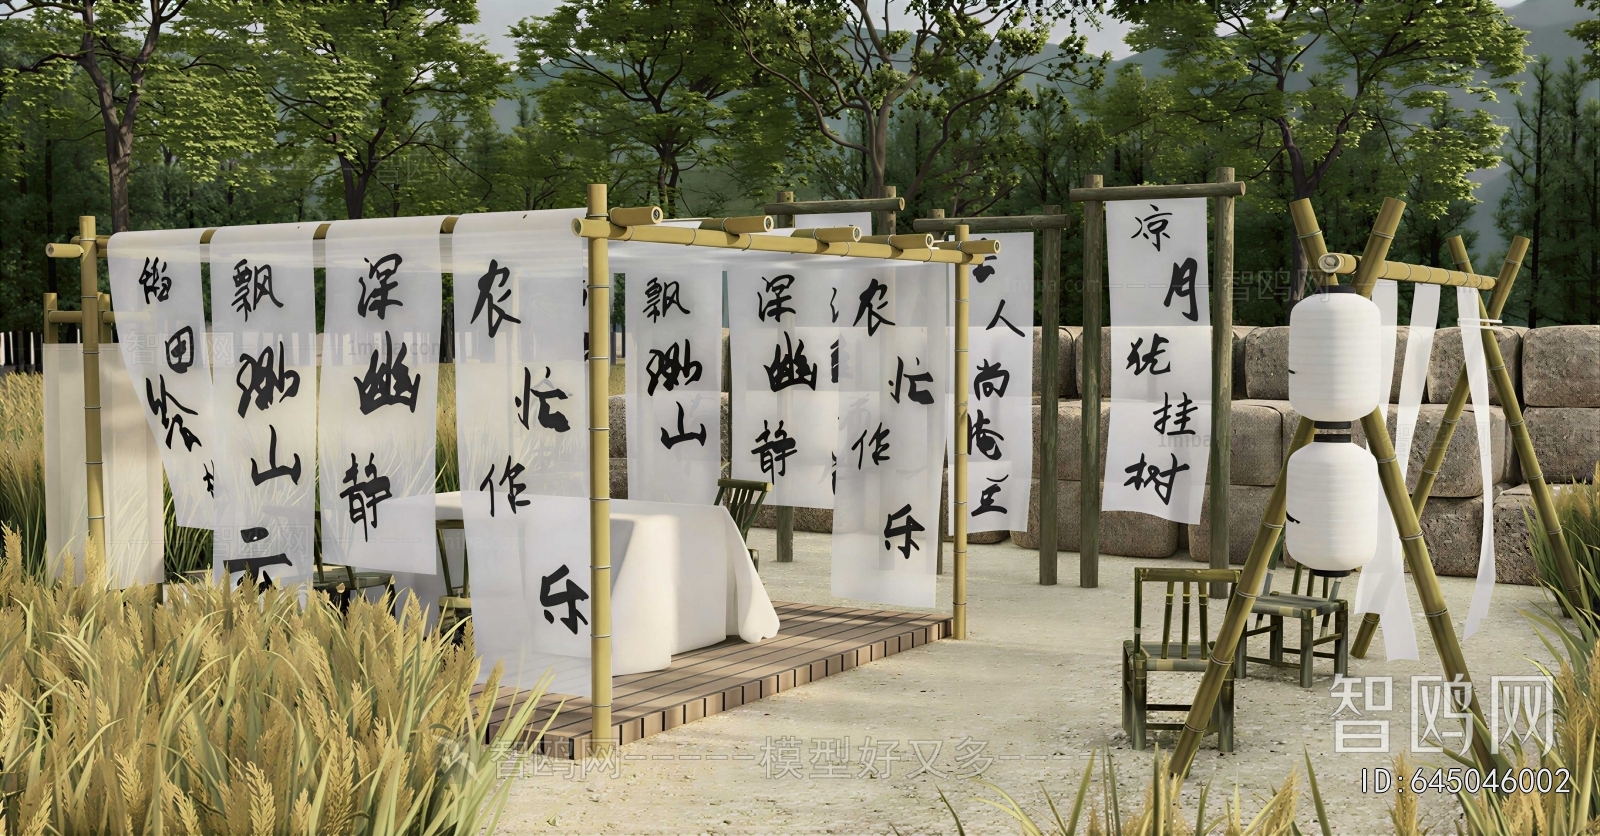 飘渺山云
深幽静
农忙作乐
飘渺山
深幽静
农忙作乐
人尚
凉月犹挂树
智鸥网
ID:645046002
智鸥网-----模型好又多----